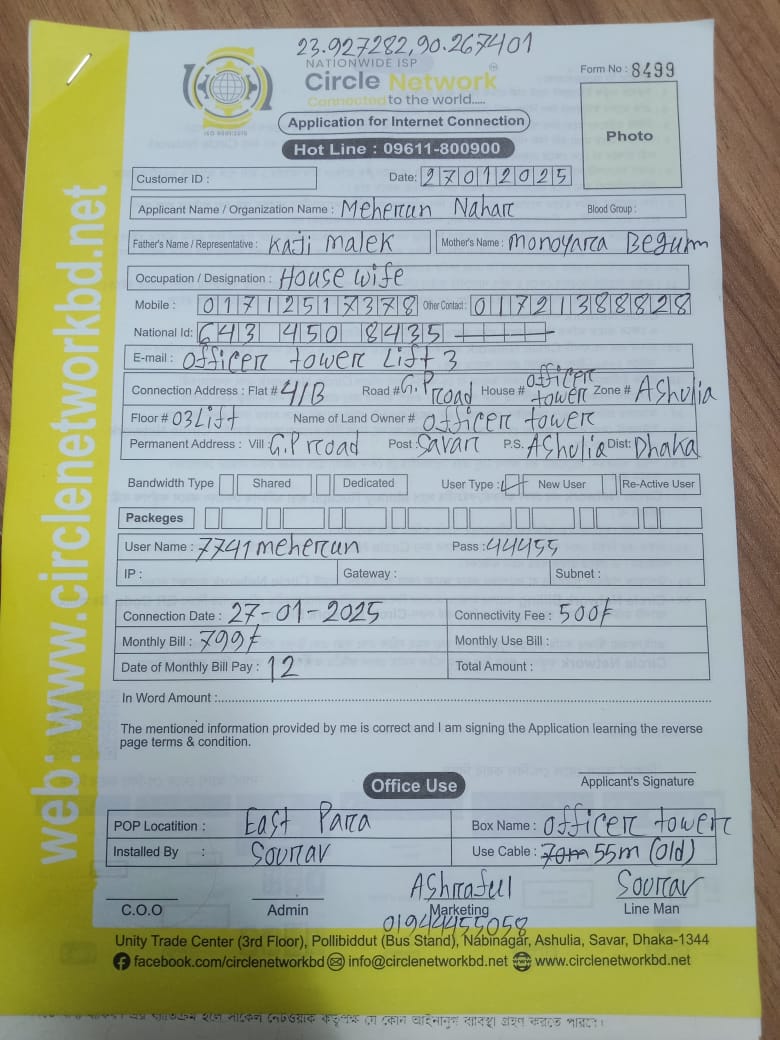 23.927282,90.267401
NATIONWIDE ISP
Circle Network
Connected to the world.....
ISO 9001:2015
Form No : 8499
Application for Internet Connection
Hot Line : 09611-800900
Photo
Customer ID :
Date: 27012025
Applicant Name / Organization Name : Meherun Nahar Blood Group :
Father's Name / Representative : Kaji Malek Mother's Name : Monoyara Begum
Occupation / Designation : House wife
Mobile : 01712517378 Other Contact : 01721388828
National Id: 643 450 8435
E-mail : officer tower Lift 3
Connection Address : Flat # 4/B Road # G.P road House # officer tower Zone # Ashulia
Floor # 03Lift Name of Land Owner # officer tower
Permanent Address : Vill G.P road Post : Savar P.S. Ashulia Dist: Dhaka
Bandwidth Type Shared Dedicated User Type : New User Re-Active User
Packeges
User Name : 7741meherun Pass : 44455
IP : Gateway : Subnet :
Connection Date : 27-01-2025 Connectivity Fee : 500৳
Monthly Bill : 799৳ Monthly Use Bill :
Date of Monthly Bill Pay : 12 Total Amount :
In Word Amount :
The mentioned information provided by me is correct and I am signing the Application learning the reverse
page terms & condition.
Applicant's Signature
Office Use
POP Locatition : East Para Box Name : officer tower
Installed By : Sourav Use Cable : 70m 55m (old)
Ashraful Sourav
C.O.O Admin Marketing Line Man
01944455058
Unity Trade Center (3rd Floor), Pollibiddut (Bus Stand), Nabinagar, Ashulia, Savar, Dhaka-1344
facebook.com/circlenetworkbd info@circlenetworkbd.net www.circlenetworkbd.net
web: www.circlenetworkbd.net
সার্কেল নেটওয়ার্ক কতৃপক্ষ যে কোন আইনানুগ ব্যবস্থা গ্রহণ করতে পারবে।